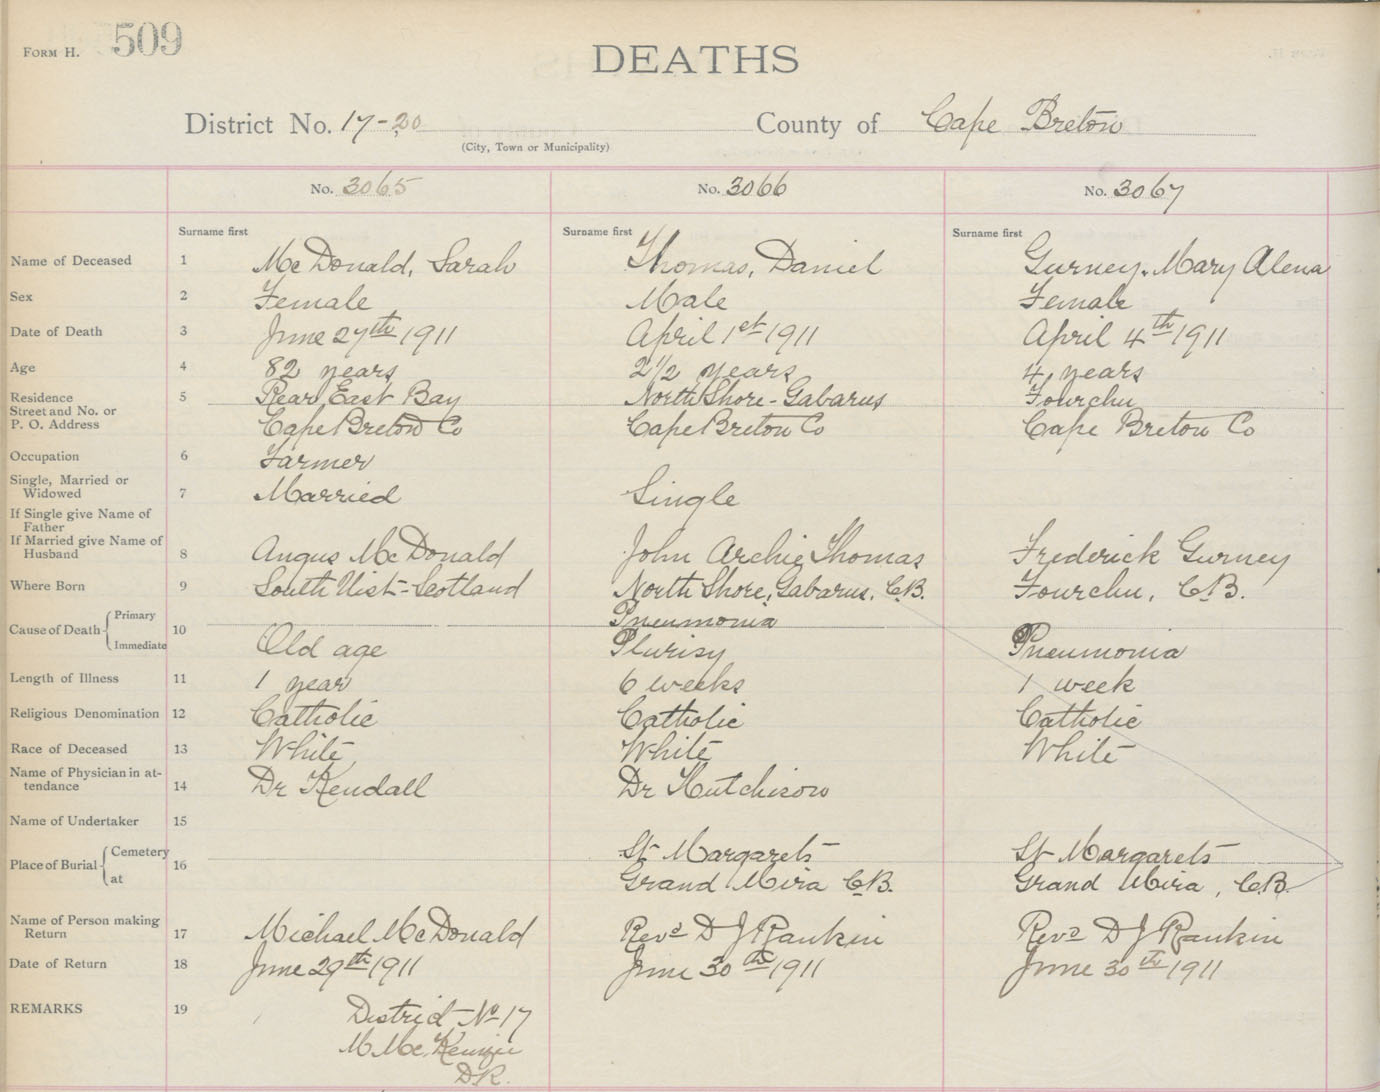 FORM H. 509
DEATHS
District No. 17-20 County of Cape Breton
(City, Town or Municipality)
No. 3065 No. 3066 No. 3067
Surname first Surname first Surname first
Name of Deceased 1 McDonald, Sarah Thomas, Daniel Gurney. Mary Alena
Sex 2 Female Male Female
Date of Death 3 June 27th 1911 April 1st 1911 April 4th 1911
Age 4 82 years 2 1/2 years 4 years
Residence 5 Rear East Bay North Shore - Gabarus Fourchu
Street and No. or
P. O. Address Cape Breton Co Cape Breton Co Cape Breton Co
Occupation 6 Farmer
Single, Married or
Widowed 7 Married Single
If Single give Name of
Father
If Married give Name of
Husband 8 Angus McDonald John Archie Thomas Frederick Gurney
Where Born 9 South Uist - Scotland North Shore, Gabarus, C.B. Fourchu, C.B.
Cause of Death Primary 10 Pneumonia
Immediate Old age Plurisy Pneumonia
Length of Illness 11 1 year 6 weeks 1 week
Religious Denomination 12 Catholic Catholic Catholic
Race of Deceased 13 White White White
Name of Physician in at-
tendance 14 Dr Kendall Dr Hutchison
Name of Undertaker 15
Place of Burial Cemetery 16 St Margarets St Margarets
at Grand Mira C.B. Grand Mira, C.B.
Name of Person making
Return 17 Michael McDonald Revd D J Rankin Revd D J Rankin
Date of Return 18 June 29th 1911 June 30th 1911 June 30th 1911
REMARKS 19 District No 17
M McKenzie
D.R.